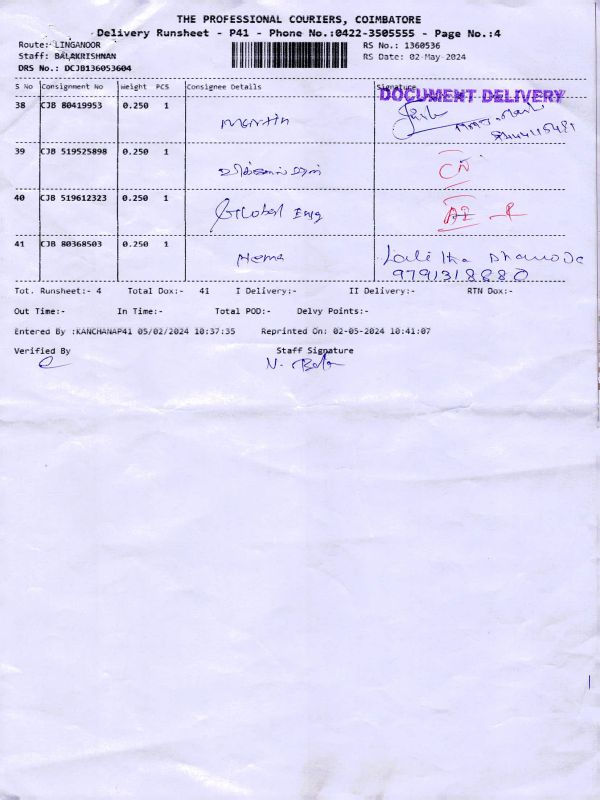 THE PROFESSIONAL COURIERS, COIMBATORE
Delivery Runsheet - P41 - Phone No.:0422-3505555 - Page No.:4
Route:- LINGANOOR RS No.: 1360536
Staff: BALAKRISHNAN RS Date: 02-May-2024
DRS No.: DCJB136053604
S No Consignment No Weight PCS Consignee Details Signature
DOCUMENT DELIVERY
38 CJB 80419953 0.250 1 Martin
39 CJB 519525898 0.250 1 CN
40 CJB 519612323 0.250 1 Global Eng
41 CJB 80368503 0.250 1 Home Lalitha
9791318880
Tot. Runsheet:- 4 Total Dox:- 41 I Delivery:- II Delivery:- RTN Dox:-
Out Time:- In Time:- Total POD:- Delvy Points:-
Entered By :KANCHANAP41 05/02/2024 10:37:35 Reprinted On: 02-05-2024 10:41:07
Verified By Staff Signature
N. Bala